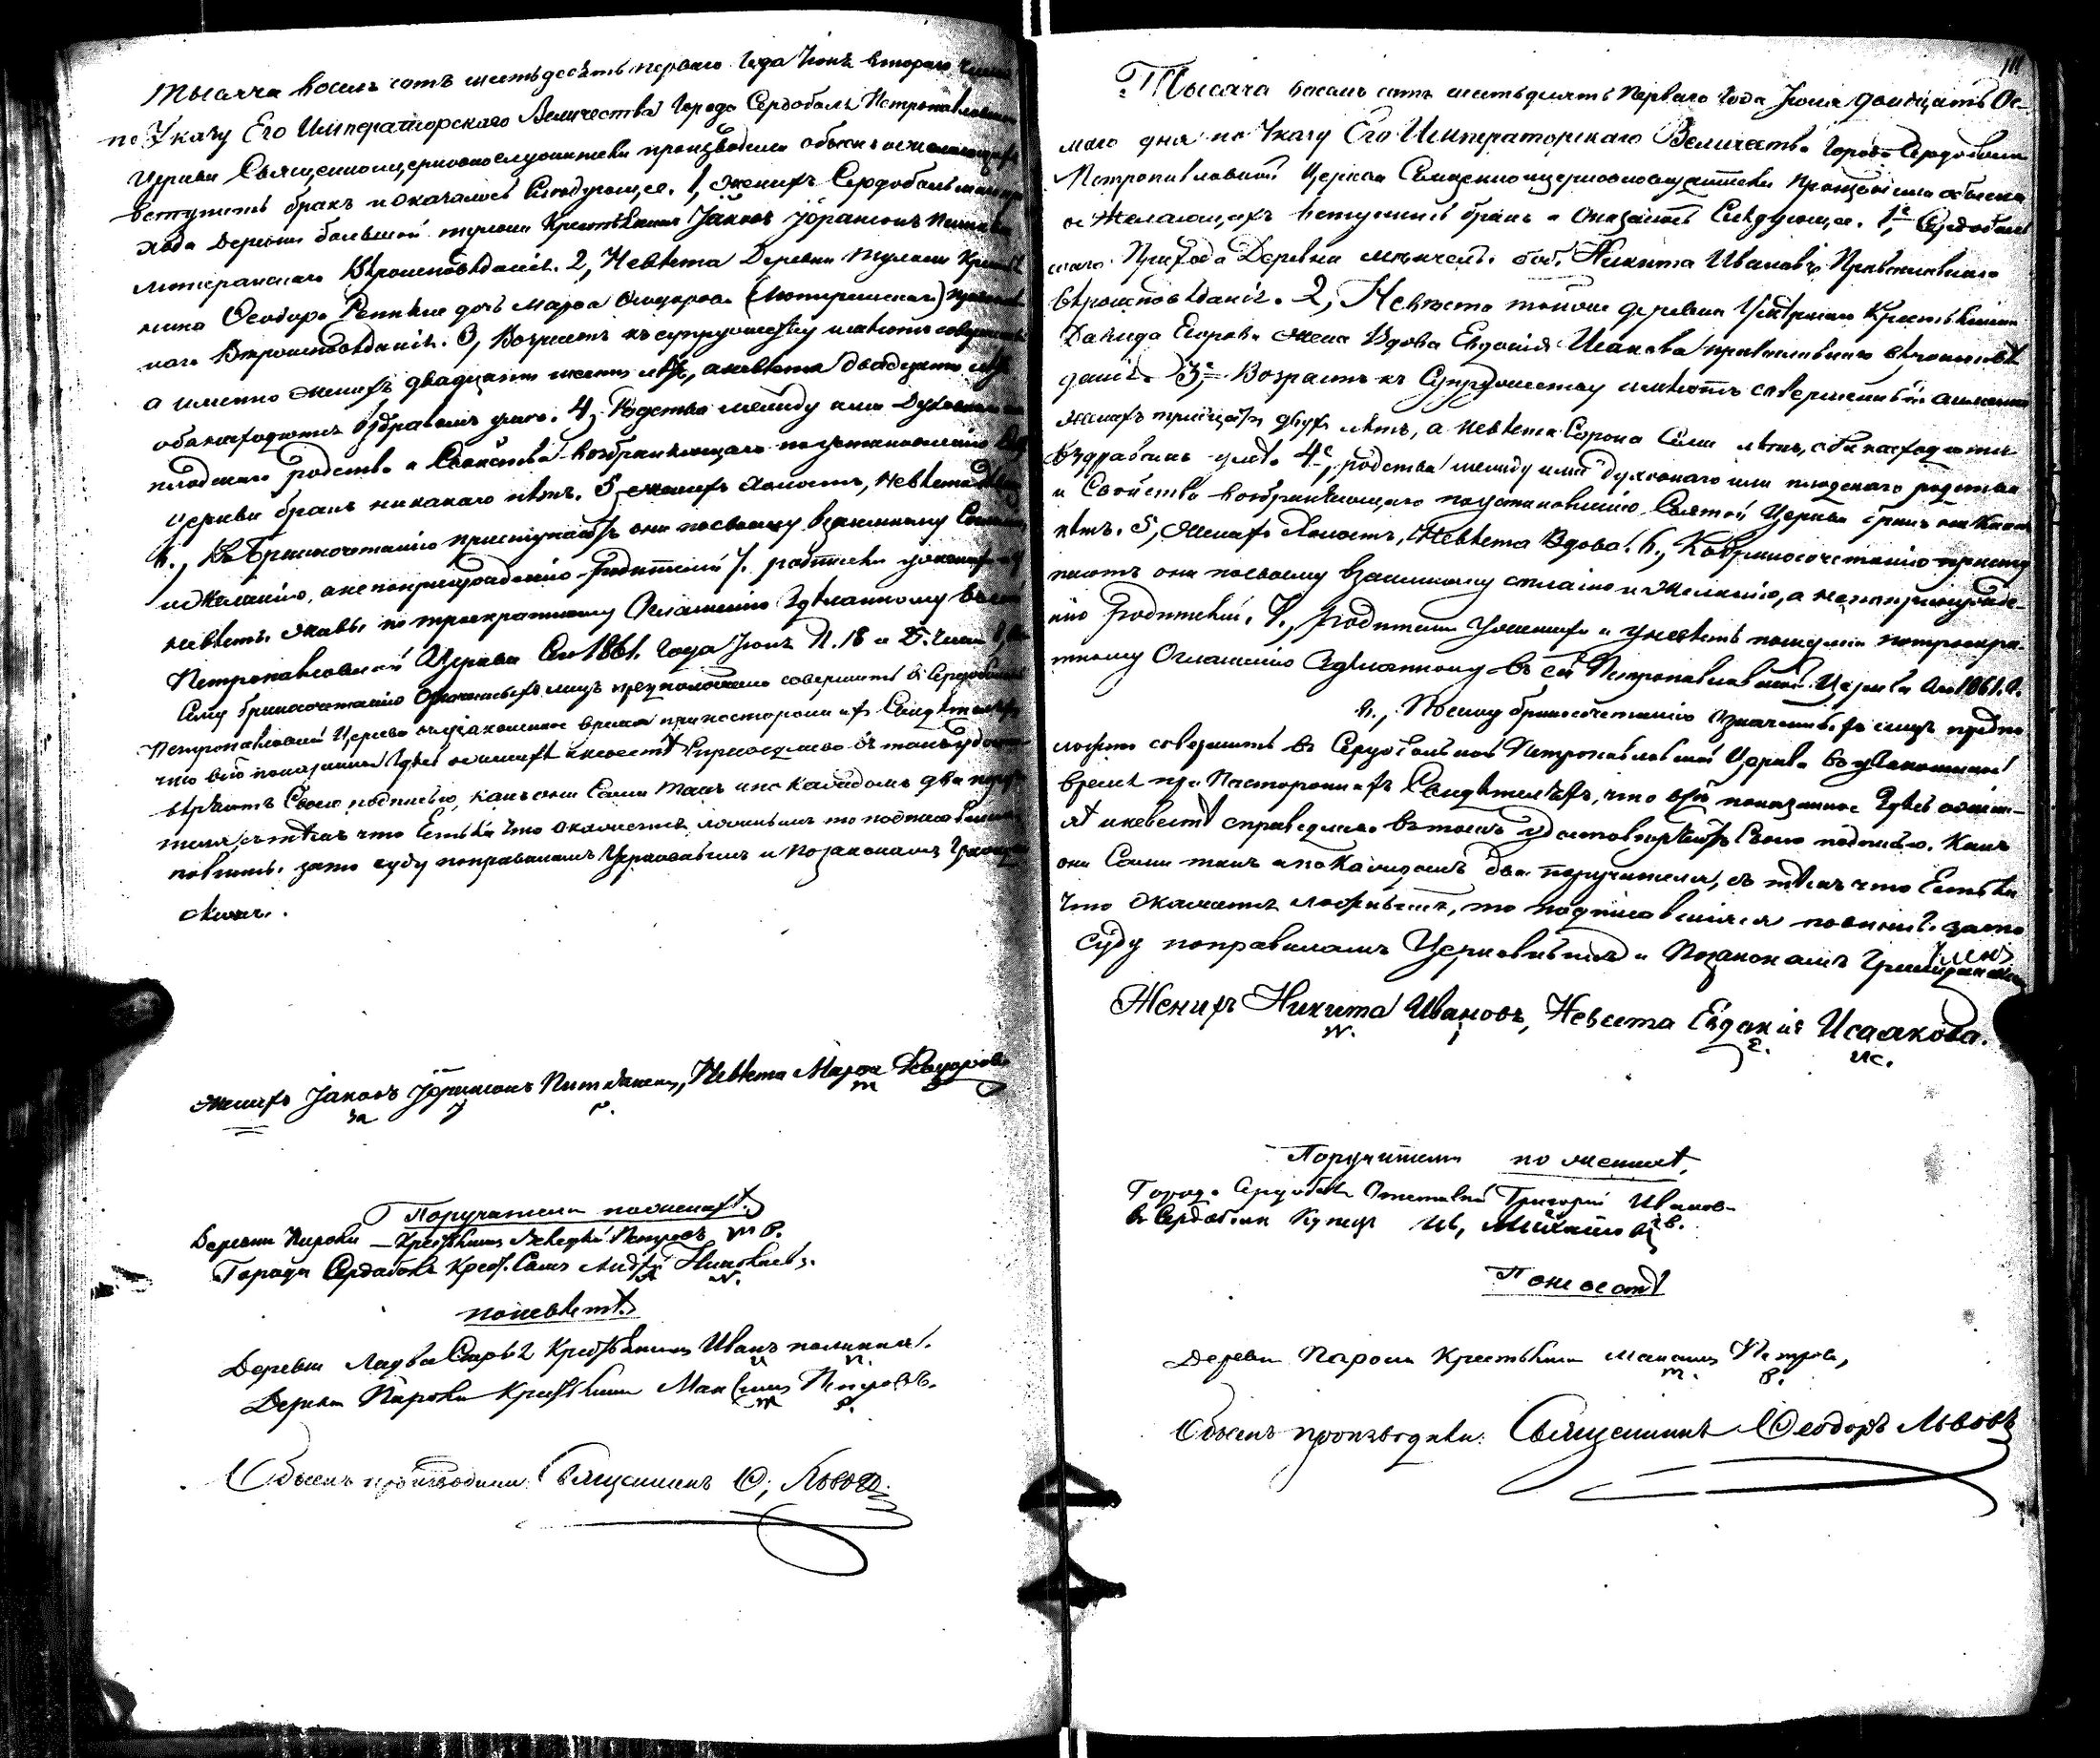 Тысяча восемь сотъ шестьдесятъ перваго года Іюня втораго
по Указу Его Императорскаго Величества Города Сердоболя Петропавловской
Церкви Священноцерковнослужители производили обыскъ о желающихъ
вступить бракъ и оказалось Следующее. 1, женихъ Сердобольскаго
хода Деревни большой тулоли Крестьянинъ Jаковъ
лютеранскаго Вѣроисповѣданія. 2, Невѣста Деревни Тулоли
нина Ѳеодора дочь Марѳа Ѳеодорова (Лютеранскаго)
наго Вѣроисповѣданія. 3, Возрастъ къ супружеству имѣютъ совершенный
а именно женихъ двадцати шести лѣтъ, а невѣста двадцати лѣтъ
оба находятся въ здравомъ умѣ. 4, Родства между ими Духовнаго
плодскаго родства и Свойства возбраняющаго по установленію
церкви бракъ никакого нѣтъ. 5, женихъ холостъ, невѣста
6., Къ Бракосочетанію приступаютъ они по своему взаимному Согласію
и желанію, а не по принужденію родителей 7. родители у жениха
невѣсты живы по троекратному Оглашенію Здѣланному въ
Петропавловской Церкви Сего 1861. года Іюня 11. 18 и 25. Числъ
Сему бракосочетанію означенныхъ лицъ предположено совершить въ Сердобольской
Петропавловской Церкви въ узаконенное время при постороннихъ Свидѣтеляхъ
что всё показанное здѣсь о женихѣ и невестѣ Справедливо въ томъ
вѣряютъ Своею подписью, какъ они Сами такъ и по Каждомъ два
теля, съ тѣмъ что Естьли что окажется ложнымъ то подписавшіеся
повинны за то суду по правиламъ Церковнымъ и по законамъ

женихъ Jаковъ, Невѣста Марѳа Ѳеодорова

Поручители по женихѣ.
Деревни Пирохи Крестьянинъ Петровъ
Города Сердоболя Крест. Сынъ Николаевъ.
по невѣстѣ.
Деревни Крестьянинъ Иванъ
Деревни Пирохи Крестьянинъ Максимъ Петровъ.
Обыскъ производили: Священникъ Ѳ, Львовъ.
Тысяча восемь сотъ шестьдесятъ Перваго года Іюня двадцать Ос-
маго дня по Указу Его Императорскаго Величества Города Сердоболя
Петропавловской Церкви Священноцерковнослужители Производили обыскъ
о Желающихъ вступить бракъ и Оказалось Слѣдующее. 1е, Сердоболь
скаго Прихода Деревни боб. Никита Ивановъ Православнаго
вѣроисповѣданія. 2, Невѣста тойже деревни умершаго Крестьянина
Давида Егорова жена Вдова Евдокія Исакова православнаго вѣроисповѣ
данія. 3е, Возрастъ къ Супружеству имѣютъ совершенный а именно
женихъ тритцати двухъ лѣтъ, а невѣста Сорока Семи лѣтъ, оба находятся
въ здравомъ умѣ. 4е, родства между ими духовнаго или плодскаго родства
и Свойства возбраняющаго по установленію Святой Церкви бракъ никакого
нѣтъ. 5, Женихъ Холостъ, Невѣста Вдова. 6., Къ бракосочетанію присту
паютъ они по своему взаимному согласію и желанію, а не по принужде-
нію Родителей. 7., Родители у жениха и у невѣсты по троекра-
тному Оглашенію Здѣланному въ сей Петропавловской Церкви Сего 1861. г.
8., По сему бракосочетанію означенныхъ лицъ предпо
ложено совершить въ Сердобольской Петропавловской Церкви въ узаконенное
время при Постороннихъ Свидѣтеляхъ, что всё показанное здѣсь о жених-
ѣ и невестѣ справедливо въ томъ удостовѣряютъ Своею подписью. Какъ
они Сами такъ и по Каждомъ два поручителя, съ тѣмъ что Естьли
Что окажется ложнымъ, то подписавшіеся повинны за то
Суду по правиламъ Церковнымъ и По законамъ Гражданскимъ
Женихъ Никита Ивановъ, Невѣста Евдокія Исаакова.

Поручители по женихѣ,
Города Сердоболя Отставной Григорій Иванов-
въ Сердоболи Купецъ
По невестѣ
Деревни Парохи Крестьянинъ Максимъ Петровъ,
Обыскъ производили: Священникъ Ѳеодоръ Львовъ